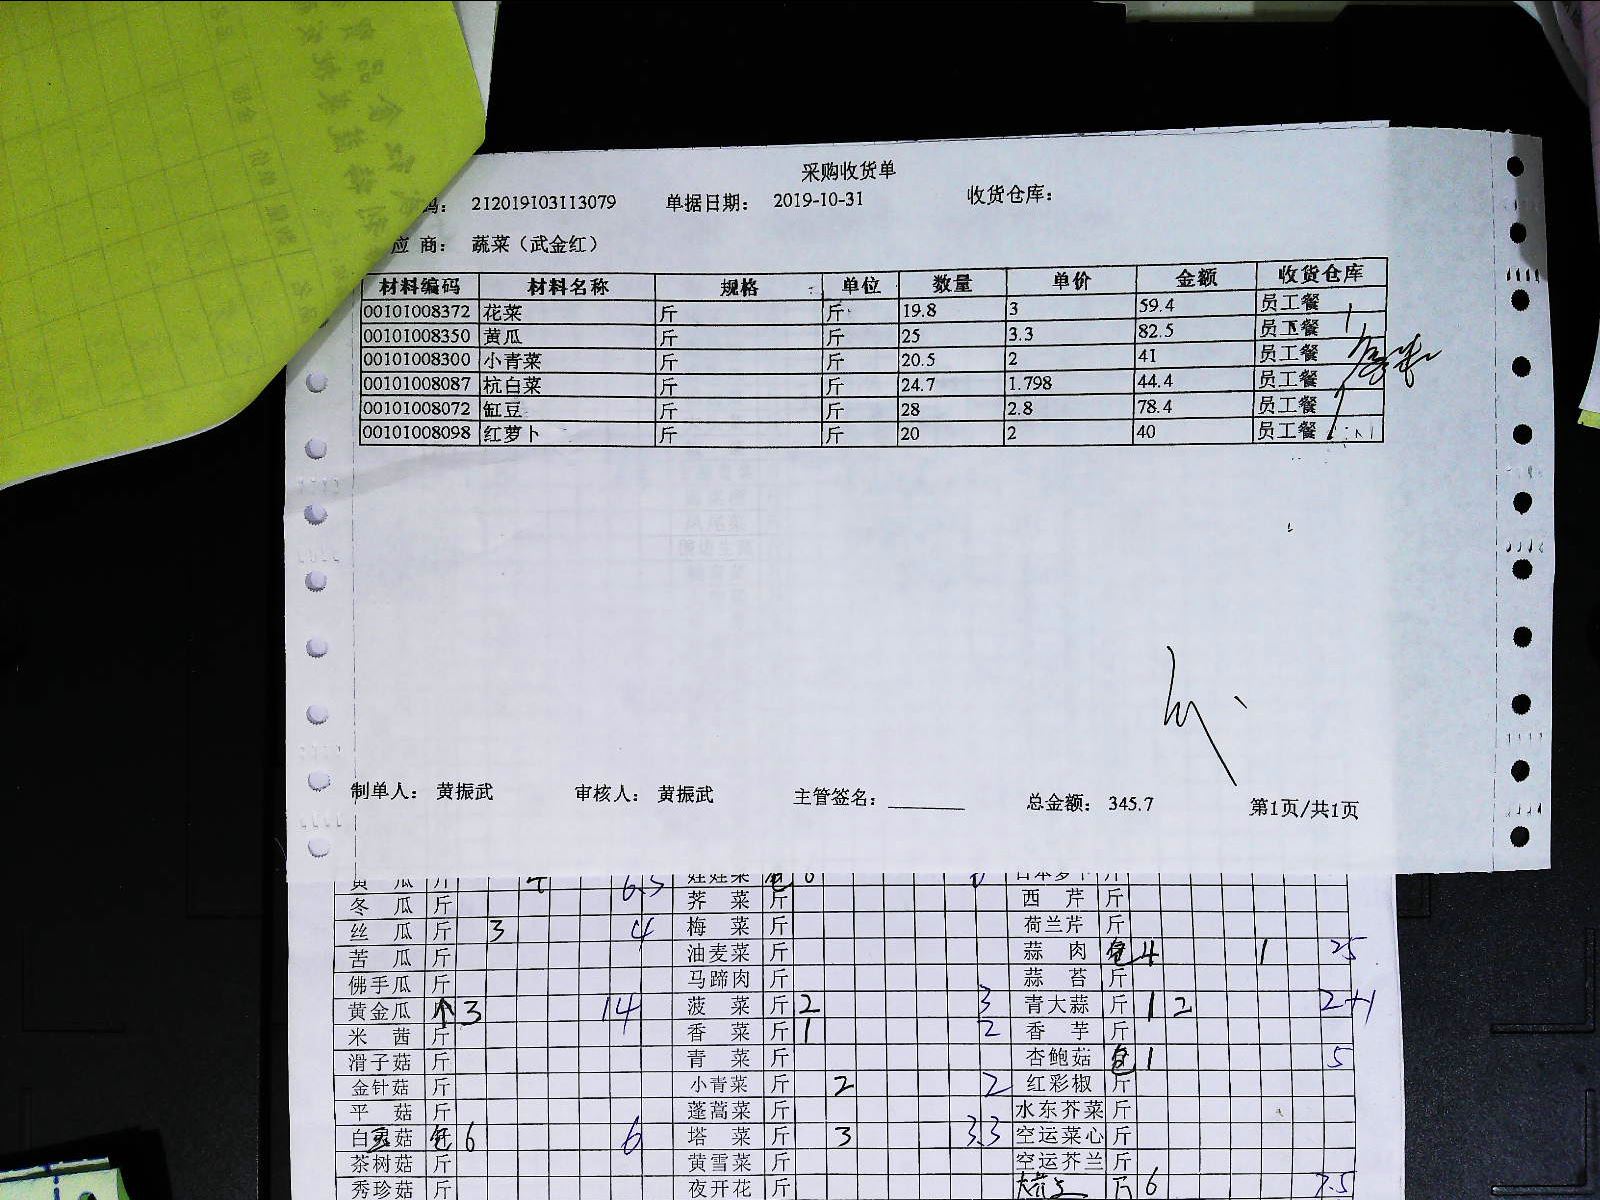 采购收货单
码： 212019103113079 单据日期： 2019-10-31 收货仓库：
应 商： 蔬菜（武金红）
材料编码 材料名称 规格 单位 数量 单价 金额 收货仓库
00101008372 花菜 斤 斤 19.8 3 59.4 员工餐
00101008350 黄瓜 斤 斤 25 3.3 82.5 员工餐
00101008300 小青菜 斤 斤 20.5 2 41 员工餐
00101008087 杭白菜 斤 斤 24.7 1.798 44.4 员工餐
00101008072 缸豆 斤 斤 28 2.8 78.4 员工餐
00101008098 红萝卜 斤 斤 20 2 40 员工餐
制单人： 黄振武 审核人： 黄振武 主管签名： 总金额： 345.7 第1页/共1页
黄 瓜 斤 6.5 娃娃菜
冬 瓜 斤 荠 菜 斤 西 芹 斤
丝 瓜 斤 3 4 梅 菜 斤 荷兰芹 斤
苦 瓜 斤 油麦菜 斤 蒜 肉 包 4 1 25
佛手瓜 斤 马蹄肉 斤 蒜 苔 斤
黄金瓜 个 3 14 菠 菜 斤 2 3 青大蒜 斤 1 2 2+1
米 茜 斤 香 菜 斤 1 2 香 芋 斤
滑子菇 斤 青 菜 斤 杏鲍菇 包 1 5
金针菇 斤 小青菜 斤 2 2 红彩椒 斤
平 菇 斤 蓬蒿菜 斤 水东芥菜 斤
白灵菇 包 6 6 塔 菜 斤 3 3.3 空运菜心 斤
茶树菇 斤 黄雪菜 斤 空运芥兰 斤
秀珍菇 斤 夜开花 斤 6 7.5